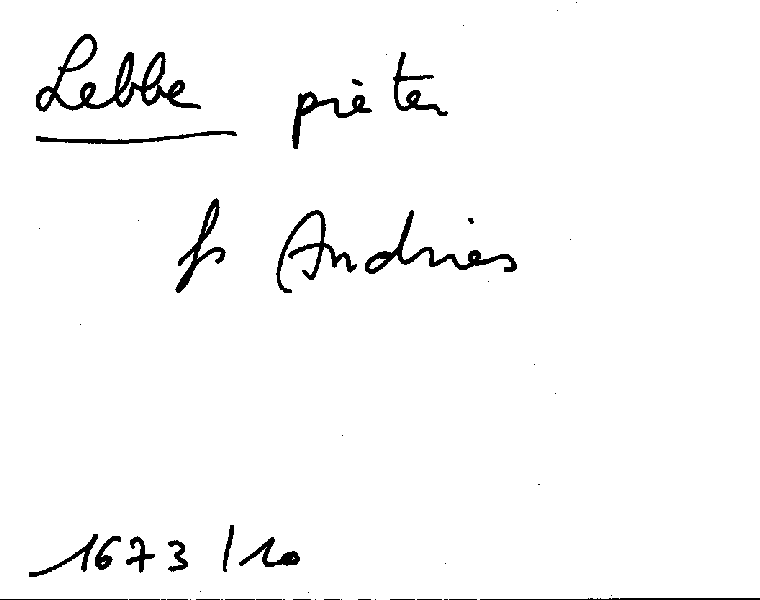 Lebbe pieter
fs Andries
1673 / 10